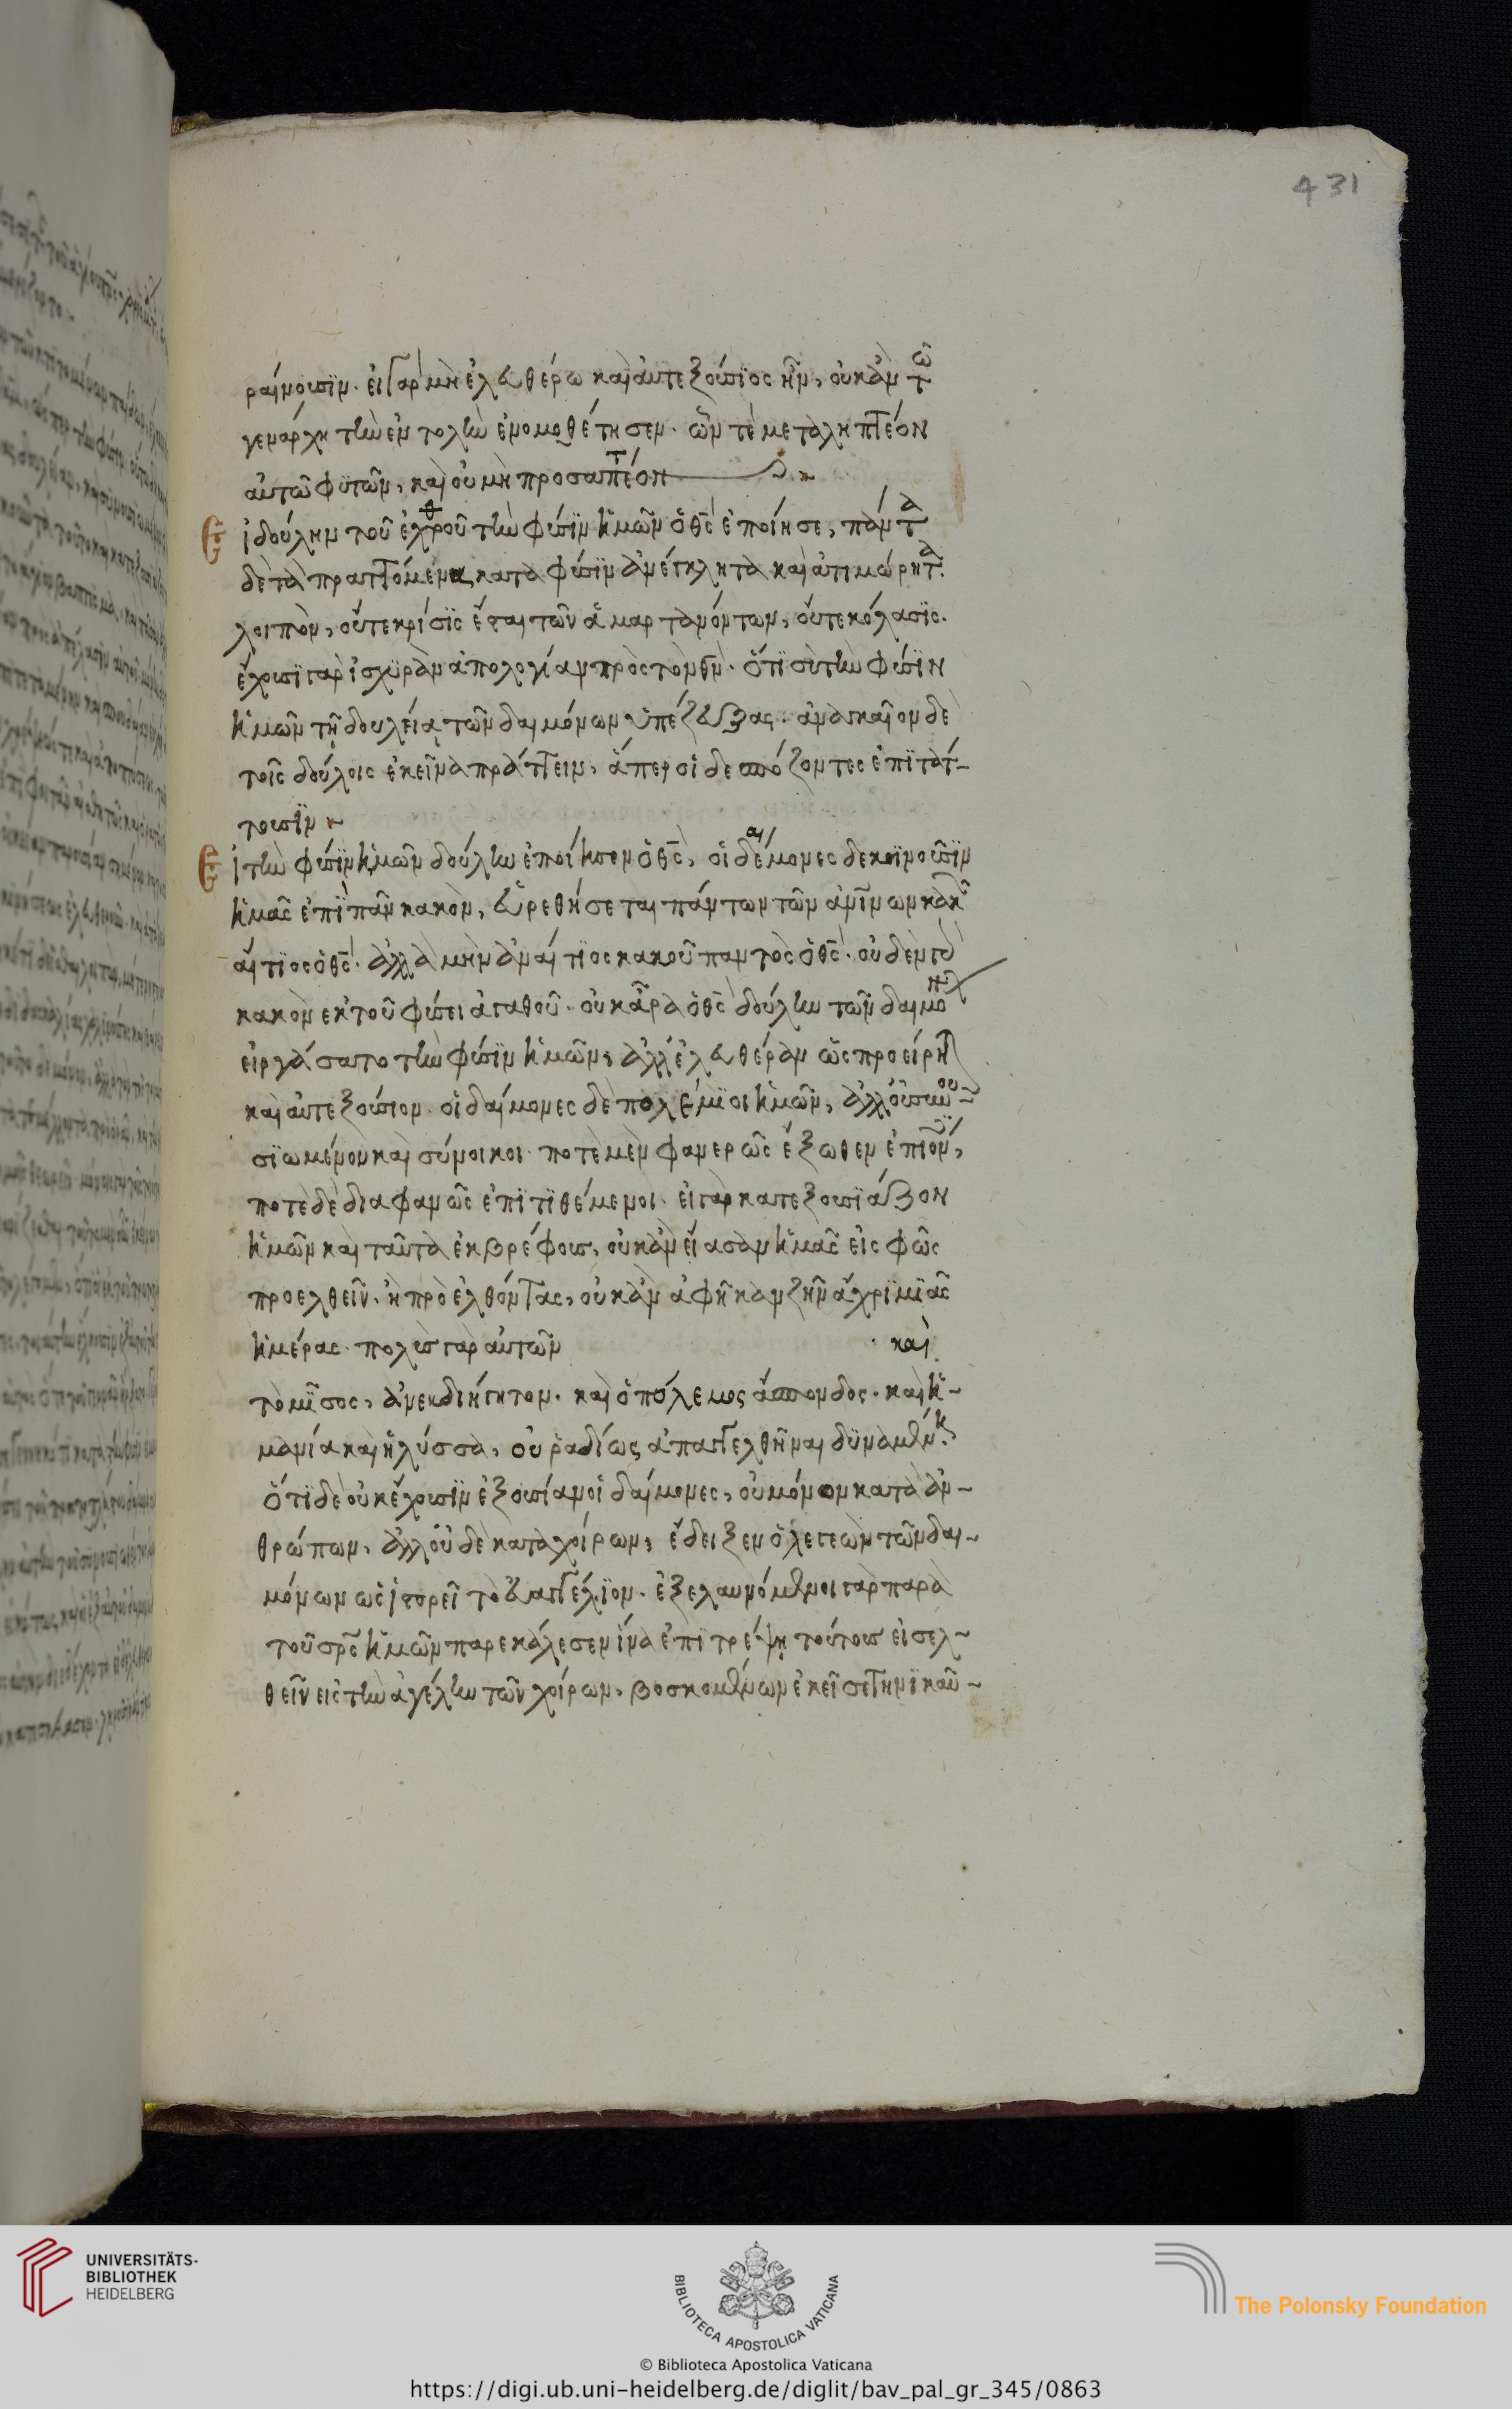 431
ραίνουσϊν. εἰ γὰρ μὴ ἐλευθέρω καὶ αὐτεξούσϊος ἦν, οὐκ ἂν τῶ
γενάρχη τὴν ἐντολὴν ἐνομοθέτησεν. ὧν τὲ μεταληπτέον
αὐτῶ φϋτῶν, καὶ οὗ μὴ προσαπτέον
Εἰ δούλην τοῦ ἐχθροῦ τὴν φύσϊν ἡμῶν ὁ θς ἐποίησε, πάντα
δὲ τὰ πραττόμενα κατὰ φύσϊν ἀνέγκλητα καὶ ἀτιμώρητα.
λοιπὸν, οὔτε κρίσϊς ἔσται τῶν ἁμαρτανόντων, οὔτε κόλασϊς.
ἔχουσϊ γὰρ ἰσχϋρὰν ἀπολογίαν πρὸς τὸν θν. ὅτϊ σὺ τὴν φύσϊν
ἡμῶν τῆ δουλεία τῶν δαιμόνων ὑπέζευξας. ἀναγκαῖον δὲ
τοῖς δούλοις ἐκεῖνα πράττειν, ἅπερ οἱ δεσπόζοντες ἐπϊτάτ-
τουσϊν
Εἰ τὴν φύσϊν ἡμῶν δούλην ἐποίησεν ὁ θς, οἱ δαίμονες δὲ κϊνοῦσϊν
ἡμᾶς ἐπϊ πᾶν κακὸν, εὑρεθήσεται πάντων τῶν
αἴτϊος ὁ θς. ἀλλὰ μὴν ἀναίτϊος κακοῦ παντὸς ὁ θς. οὐδὲν γὰρ
κακὸν ἐκ τοῦ φύσει ἀγαθοῦ. οὐκ ἄρα ὁ θς δούλην τῶν δαιμόνων
εἰργάσατο τὴν φύσϊν ἡμῶν, ἀλλ' ἐλευθέραν ὡς προείρηται
καὶ αὐτεξούσιον. οἱ δαίμονες δὲ πολέμϊοι ἡμῶν, ἀλλ' οὐκ
καὶ σύνοικοι. ποτὲ μὲν φανερῶς ἔξωθεν ἐπϊόντες,
ποτὲ δὲ διαφανῶς ἐπϊτϊθέμενοι. εἰ γὰρ κατεξουσϊάζον
ἡμῶν καὶ ταῦτα ἐκ βρέφους, οὐκ ἂν εἴασαν ἡμᾶς εἰς φῶς
προελθεῖν. ἢ προελθόντας, οὐκ ἂν ἀφῆκαν ζῆν ἄχρϊ μϊᾶς
ἡμέρας. πολὺς γὰρ αὐτῶν . καὶ
τὸ μῖσος, ἀνεκδιήγητον. καὶ ὁ πόλεμος ἄσπονδος. καὶ ἡ-
μανία καὶ ἡ λύσσα, οὐ ῥαδίως ἀπαγγελθῆναι δϋναμένη.
ὅτϊ δὲ οὐκ ἔχουσϊν ἐξουσίαν οἱ δαίμονες, οὐ μόνον κατὰ ἀν-
θρώπων, ἀλλ' οὐδὲ κατὰ χοίρων, ἔδειξεν ὁ λεγεὼν τῶν δαι-
μόνων ὡς ἱστορεῖ τὸ εὐαγγέλϊον. ἐξελαυνόμενοι γὰρ παρὰ
τοῦ σρς ἡμῶν παρεκάλεσεν ἵνα ἐπϊτρέψη τούτους εἰσελ-
θεῖν εἰς τὴν ἀγέλην τῶν χοίρων, βοσκομένων ἐκεῖσε
UNIVERSITÄTS-
BIBLIOTHEK
HEIDELBERG
BIBLIOTECA APOSTOLICA VATICANA
The Polonsky Foundation
© Biblioteca Apostolica Vaticana
https://digi.ub.uni-heidelberg.de/diglit/bav_pal_gr_345/0863